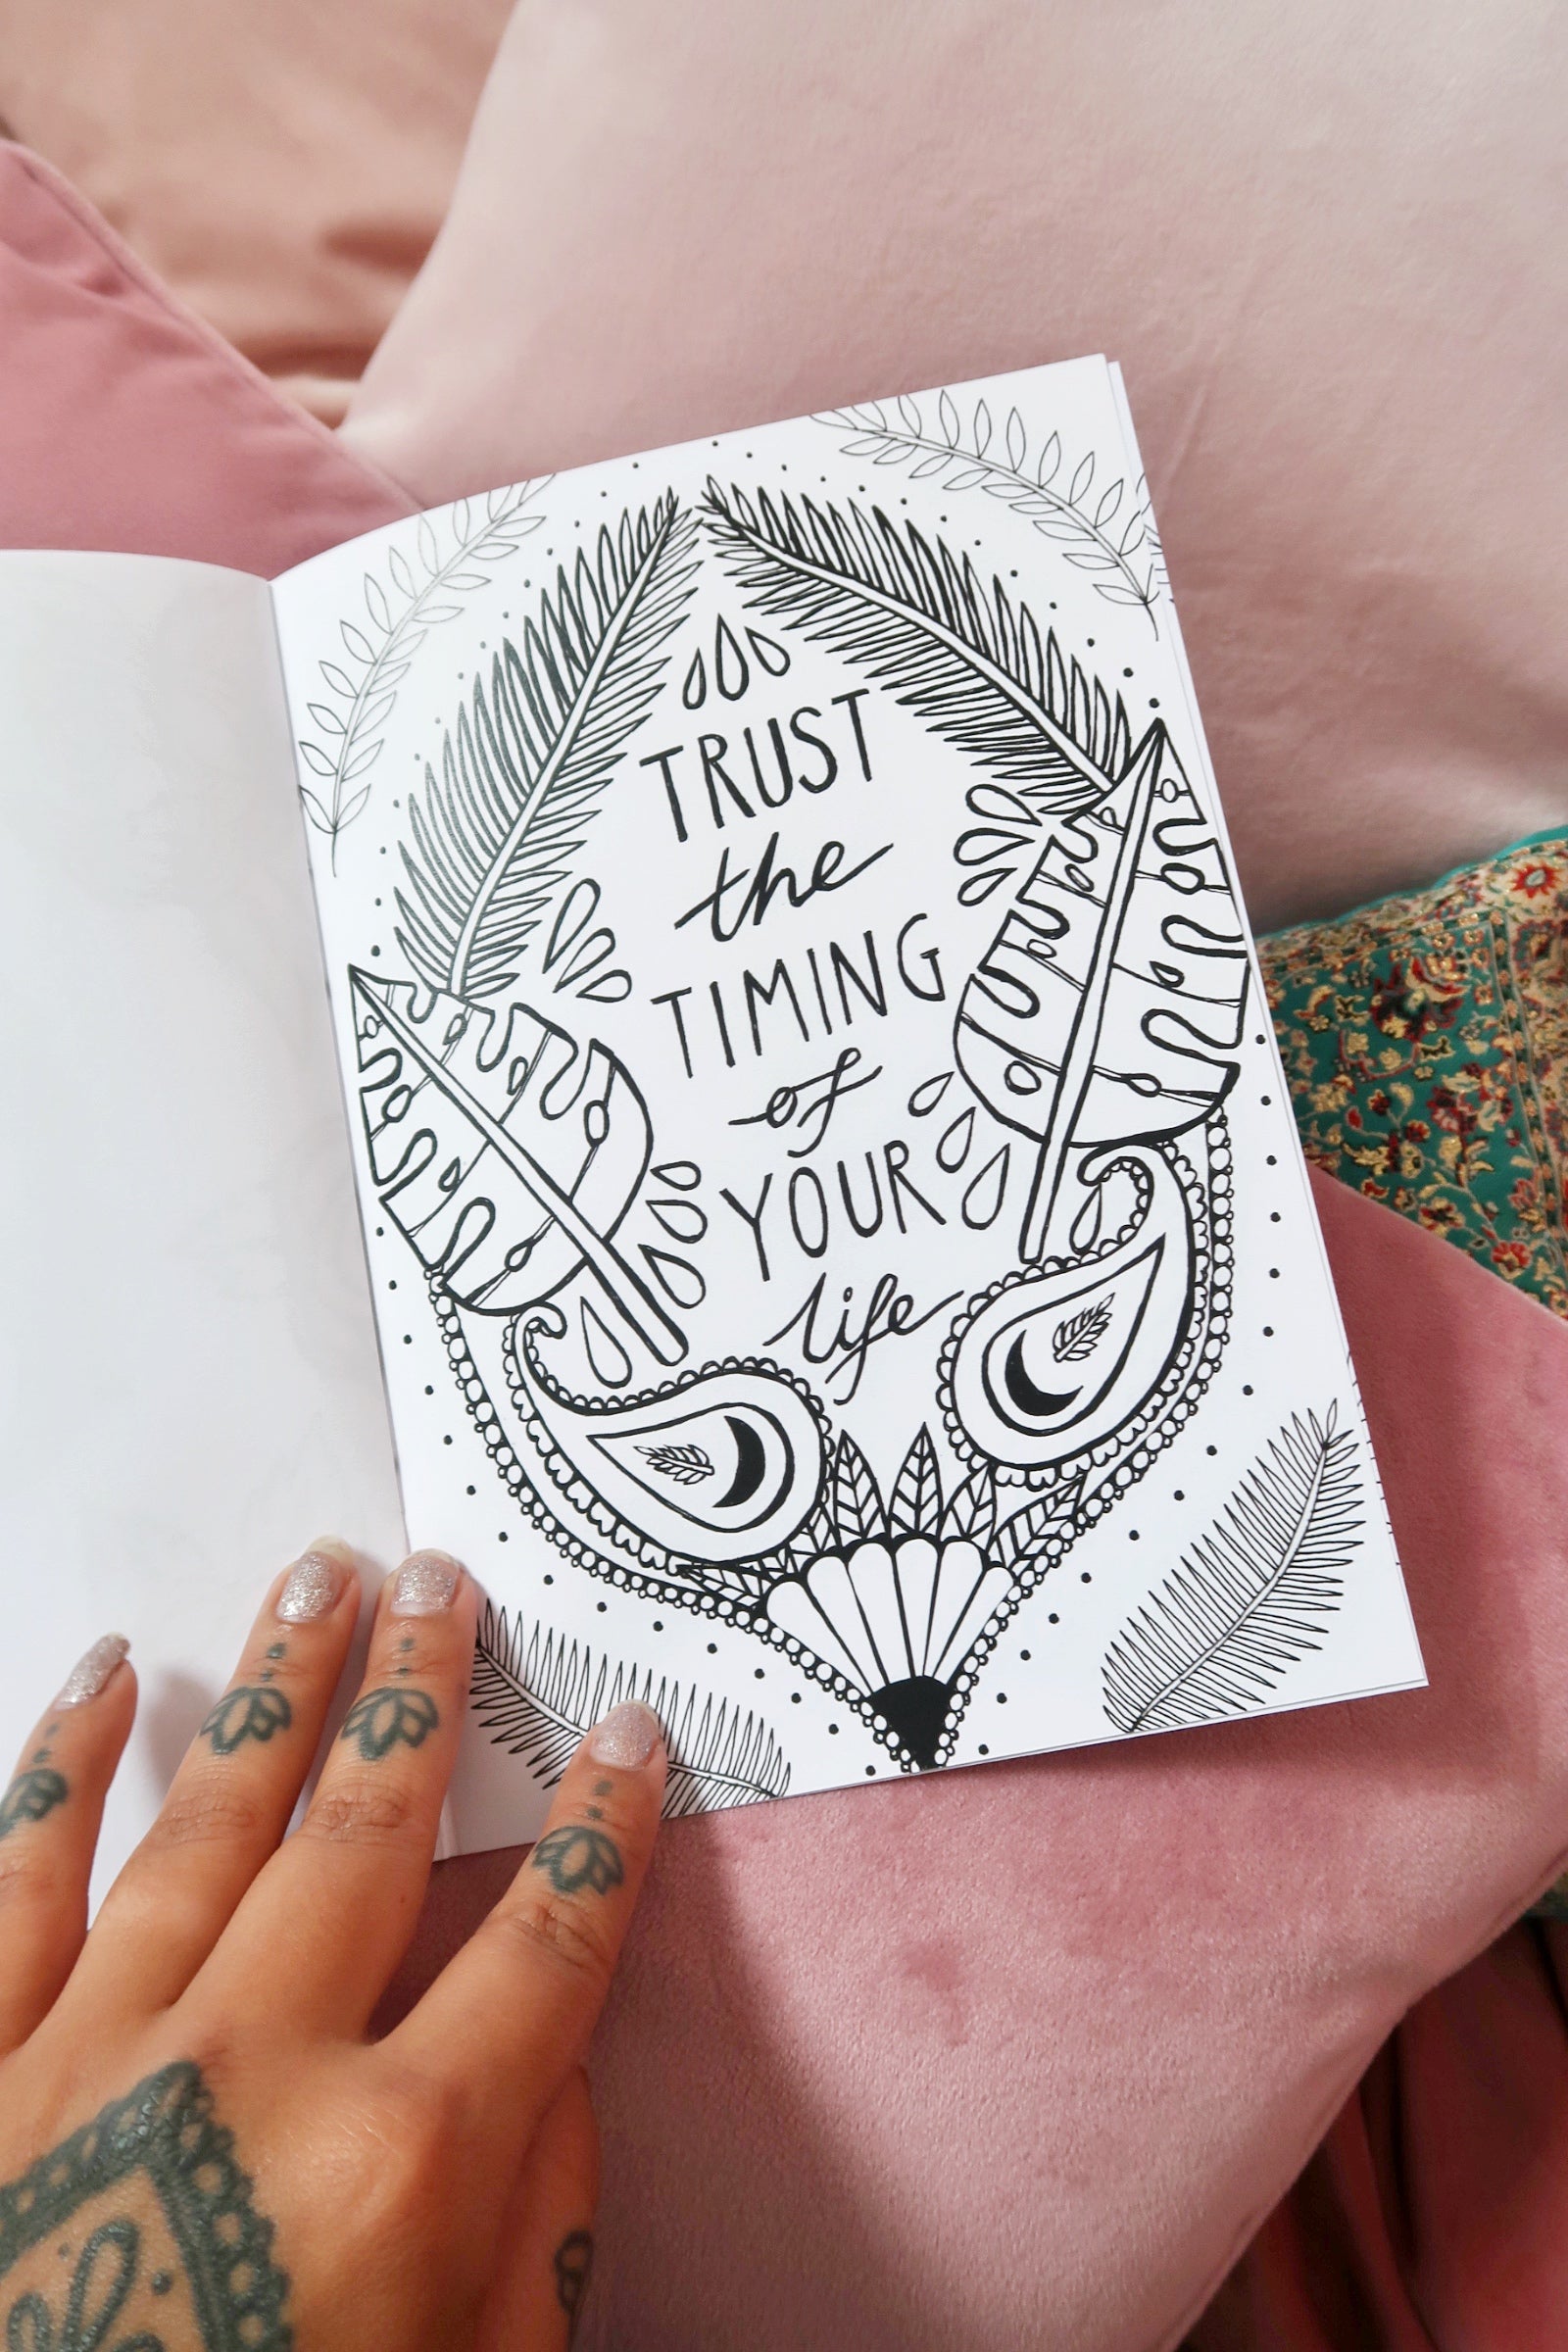 TRUST
the
TIMING
of
YOUR
life